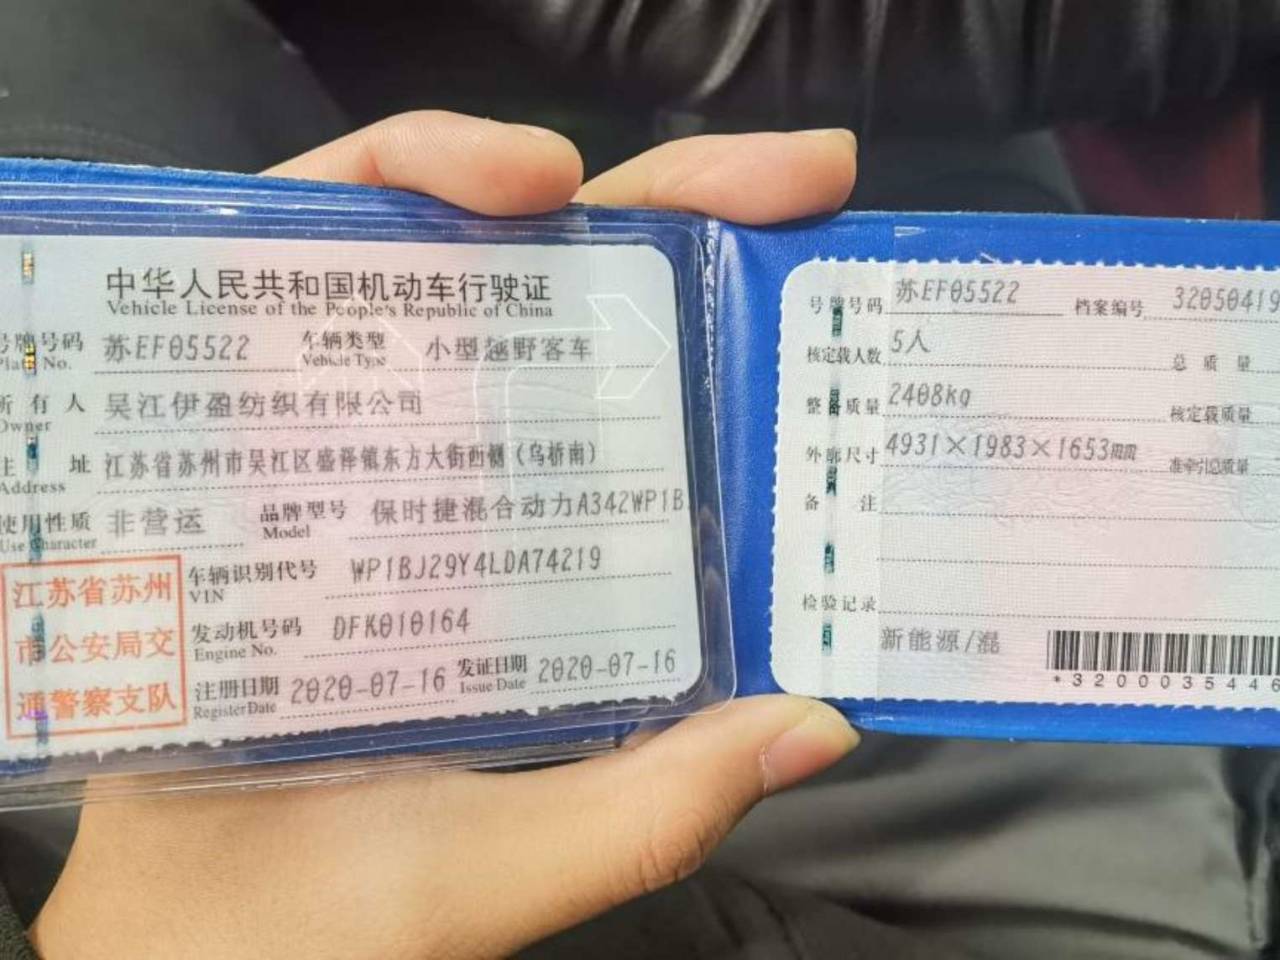 中华人民共和国机动车行驶证
Vehicle License of the People's Republic of China
号牌号码 苏EF05522 车辆类型 小型越野客车
Plate No. Vehicle Type
所有人 吴江伊盈纺织有限公司
Owner
住址 江苏省苏州市吴江区盛泽镇东方大街西侧(乌桥南)
Address
使用性质 非营运 品牌型号 保时捷混合动力A342WP1B
Use Character Model
江苏省苏州
市公安局交
通警察支队
车辆识别代号 WP1BJ29Y4LDA74219
VIN
发动机号码 DFK010164
Engine No.
注册日期 2020-07-16 发证日期 2020-07-16
Register Date Issue Date
号牌号码 苏EF05522 档案编号 32050419
核定载人数 5人 总质量
整备质量 2408kg 核定载质量
外廓尺寸 4931×1983×1653mm 准牵引总质量
备注
检验记录
新能源/混
*3200035446